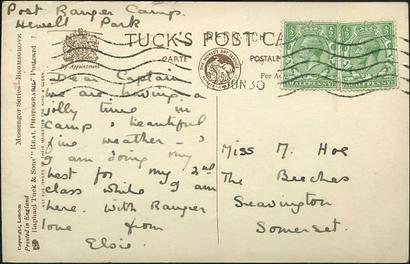 Post Ranger Camp.
Hewell Park
TUCK'S POST CA
CARTE
POSTALE
By Appointment
JUN 30
HALFPENNY
HALFPENNY
Messenger Series—Bromsgrove
Raphael Tuck & Sons' "REAL PHOTOGRAPH" Postcard
Copyright, London
Printed in England
Dear Captain
we are having a
jolly time in
Camp & beautiful
fine weather -
I am doing my
best for my 2nd
class while I am
here. With Ranger
love from
Elsie.
Miss M. Hoe
The Beeches
Seavington
Somerset.